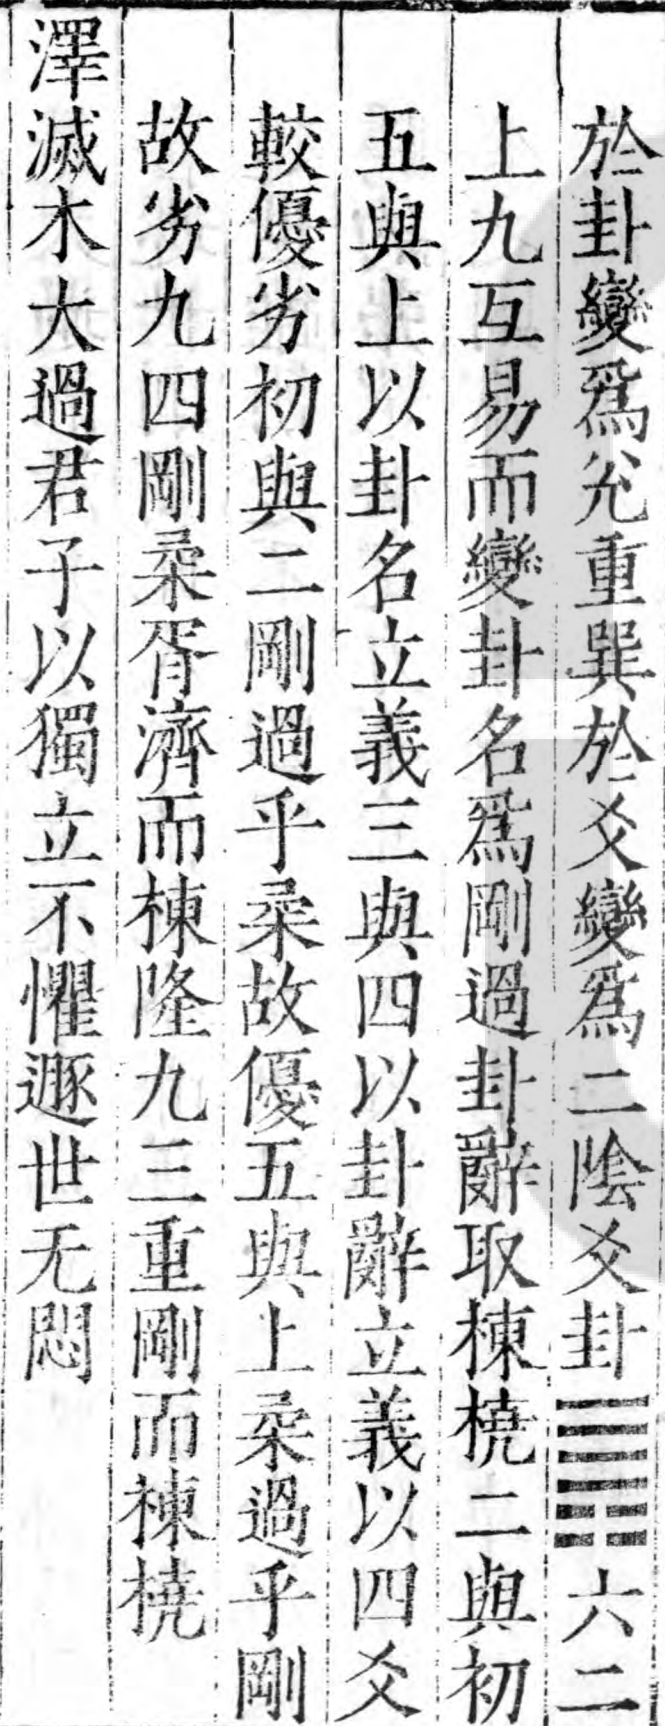 於卦變爲兊重巽於爻變爲二陰爻卦䷠六二
上九互易而變卦名爲剛過卦辭取棟橈二與初
五與上以卦名立義三與四以卦辭立義以四爻
較優劣初與二剛過乎柔故優五與上柔過乎剛
故劣九四剛柔胥濟而棟隆九三重剛而棟橈
澤滅木大過君子以獨立不懼遯世无悶